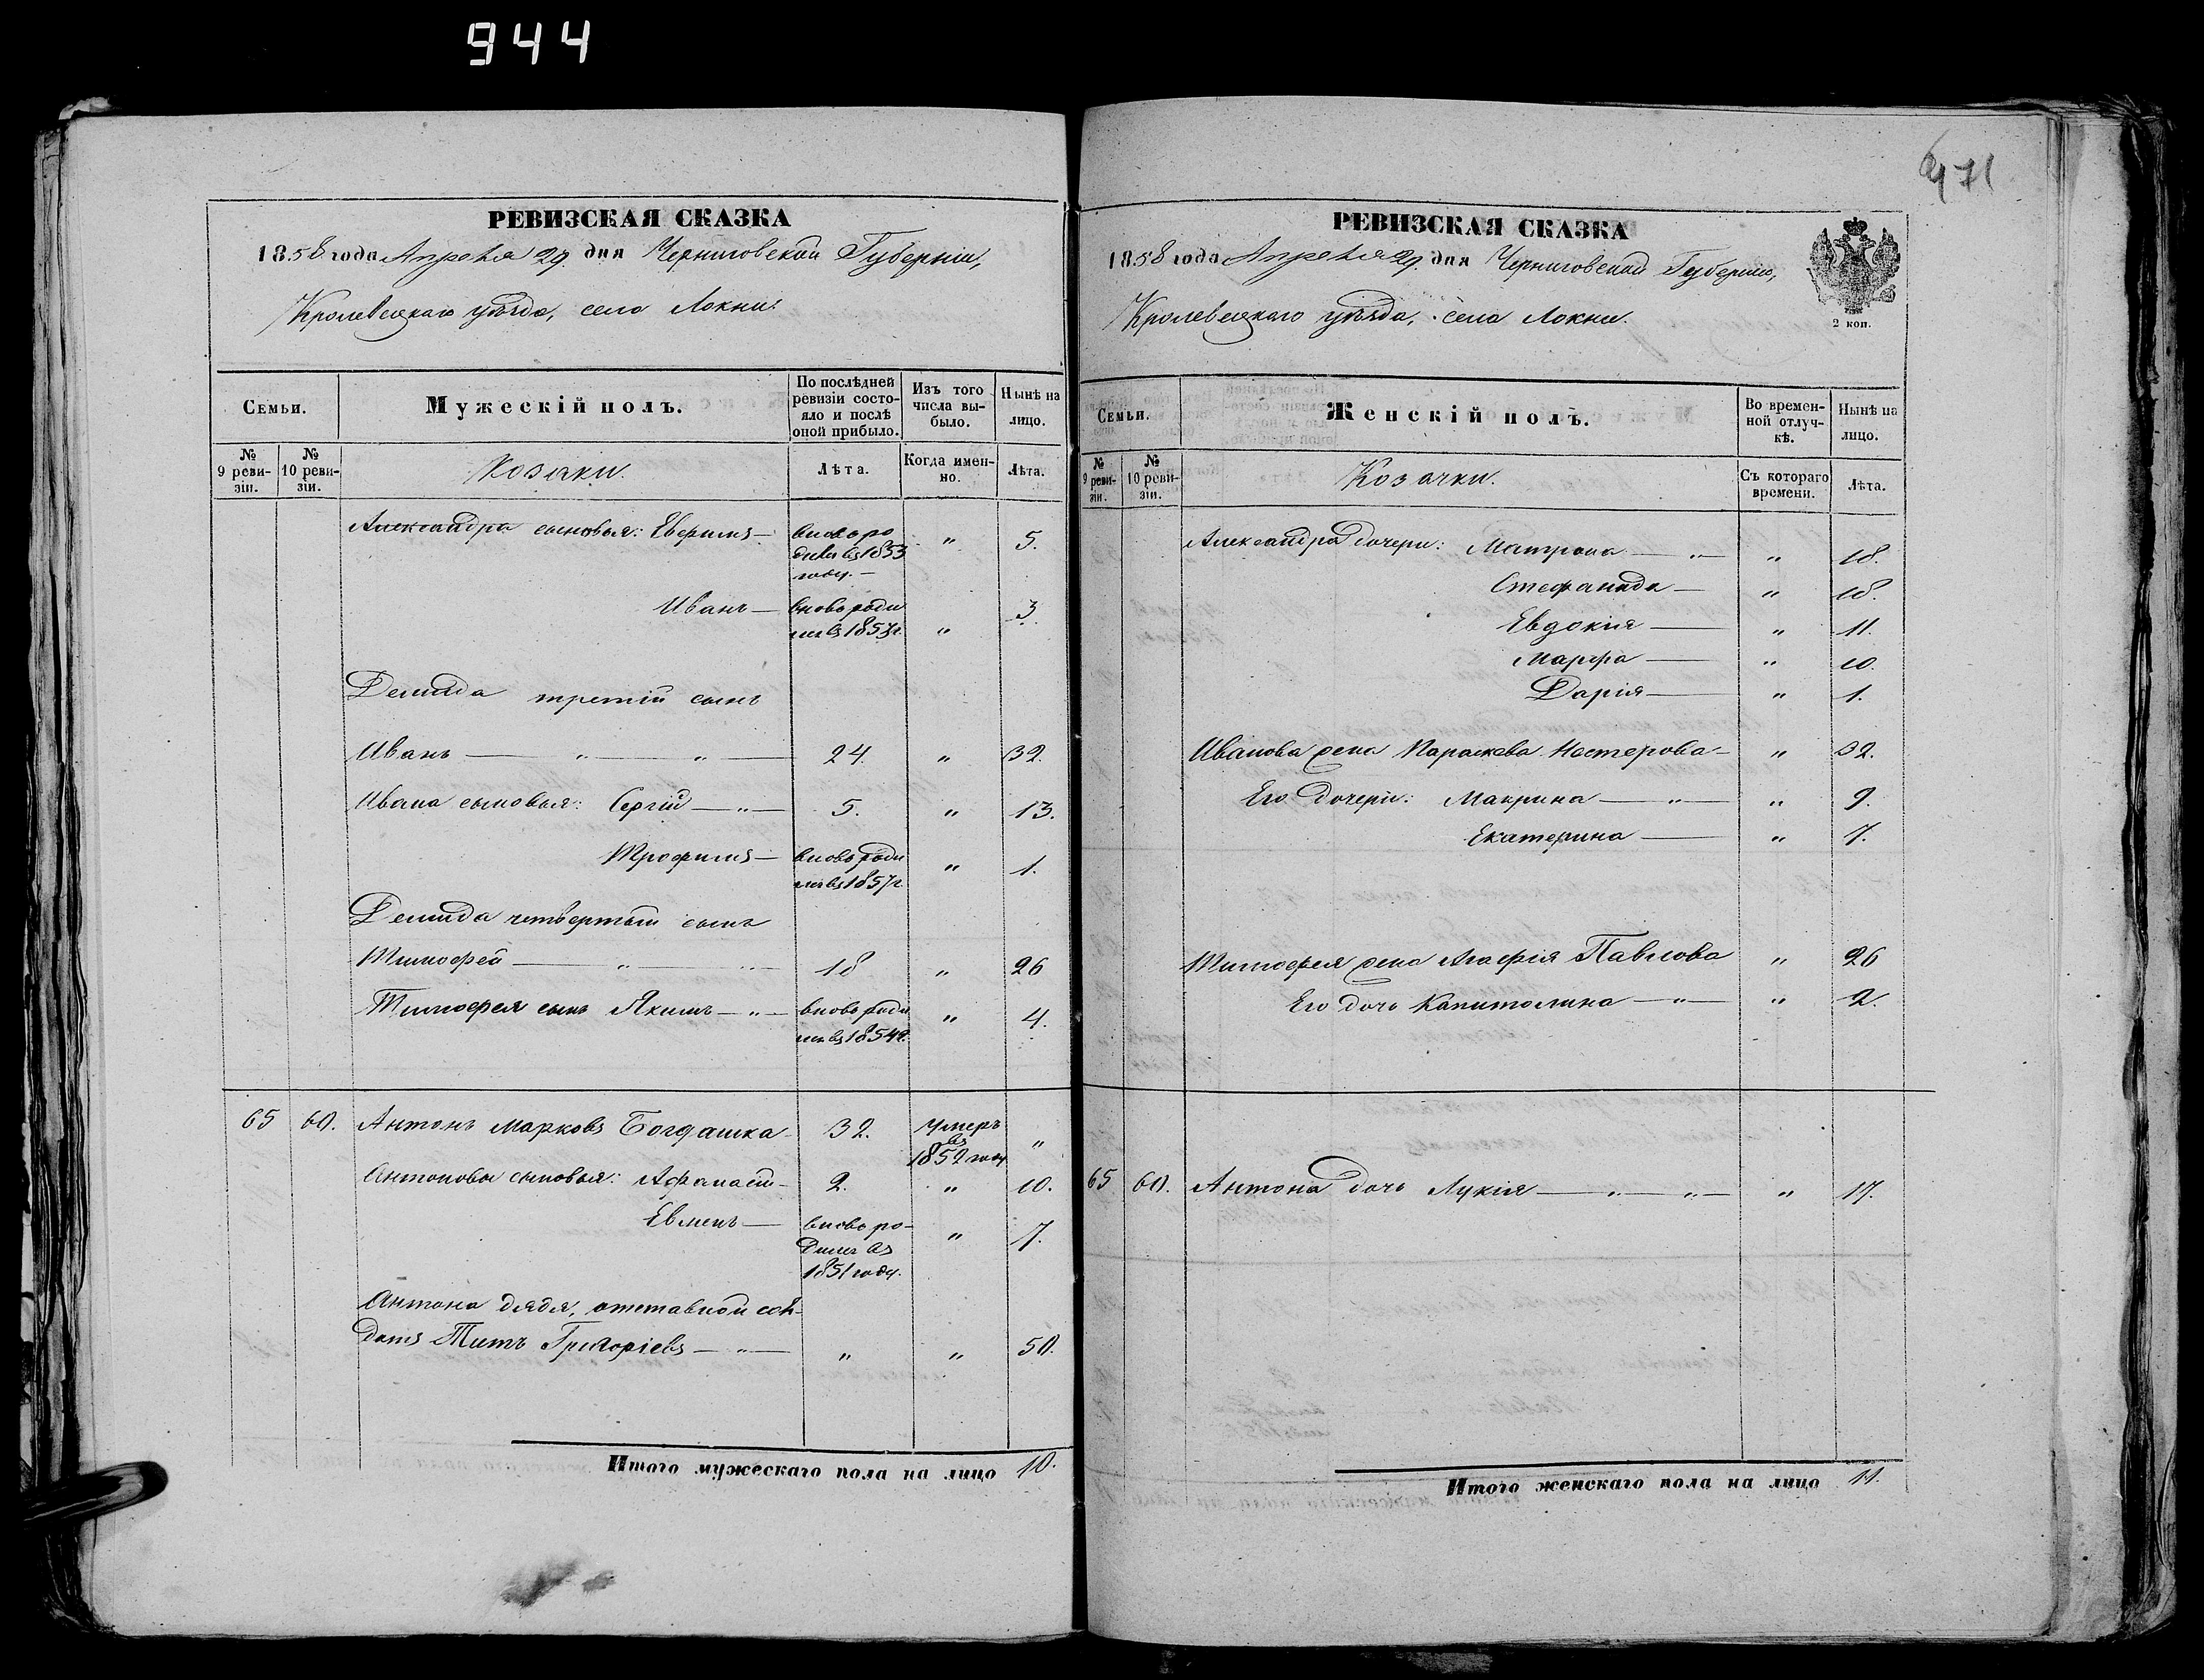 944
471
РЕВИЗСКАЯ СКАЗКА
1858 года Апреля 29. дня Черниговской Губерніи,
Кролевецкаго уѣзда, села Локни.
Семьи.
Мужескій полъ.
По послѣдней ревизіи состояло и послѣ оной прибыло.
Изъ того числа выбыло.
Нынѣ на лицо.
№ 9 ревизіи.
№ 10 ревизіи.
Козаки.
Лѣта.
Когда именно.
Лѣта.
Александра сыновья: Евфимъ — вновь родился въ 1853 году. — " 5.
Иванъ — вновь родился въ 185 г. " 3.
Демида третій сынъ
Иванъ — " — " — 24. " 32.
Ивана сыновья: Сергій — " — 5. " 13.
Трофимъ — вновь родился въ 1857 г. " 1.
Демида четвертый сынъ
Тимофей — " — 18 " 26
Тимофея сынъ Якимъ — " — вновь родился въ 1854 г. " 4.
65 60. Антонъ Марковъ Богдашка 32. умеръ въ 1852 году "
Антоновы сыновья: Афанасій — 2. " 10.
Евменъ — вновь родился въ 1851 году. " 7.
Антона дядя, отставной солдатъ Титъ Григоріевъ — " — " " 50.
Итого мужескаго пола на лицо 10.
РЕВИЗСКАЯ СКАЗКА
1858 года Апреля 29. дня Черниговской Губерніи,
Кролевецкаго уѣзда, села Локни.
2 коп.
Семьи.
Женскій полъ.
Во временной отлучкѣ.
Нынѣ на лицо.
№ 9 ревизіи.
№ 10 ревизіи.
Козачки.
Съ котораго времени.
Лѣта.
Александра дочери: Матрона — " — " 18.
Стефанида — " 18.
Евдокія — " 11.
Марфа — " 10.
Дарія — " 1.
Иванова жена Параскева Нестерова — " 32.
Его дочери: Макрина — " — " 9.
Екатерина — " 7.
Тимофея жена Агафія Павлова " 26
Его дочь Капитолина — " — " 2.
65 60. Антона дочь Лукія — " — " — " 17.
Итого женскаго пола на лицо 11.